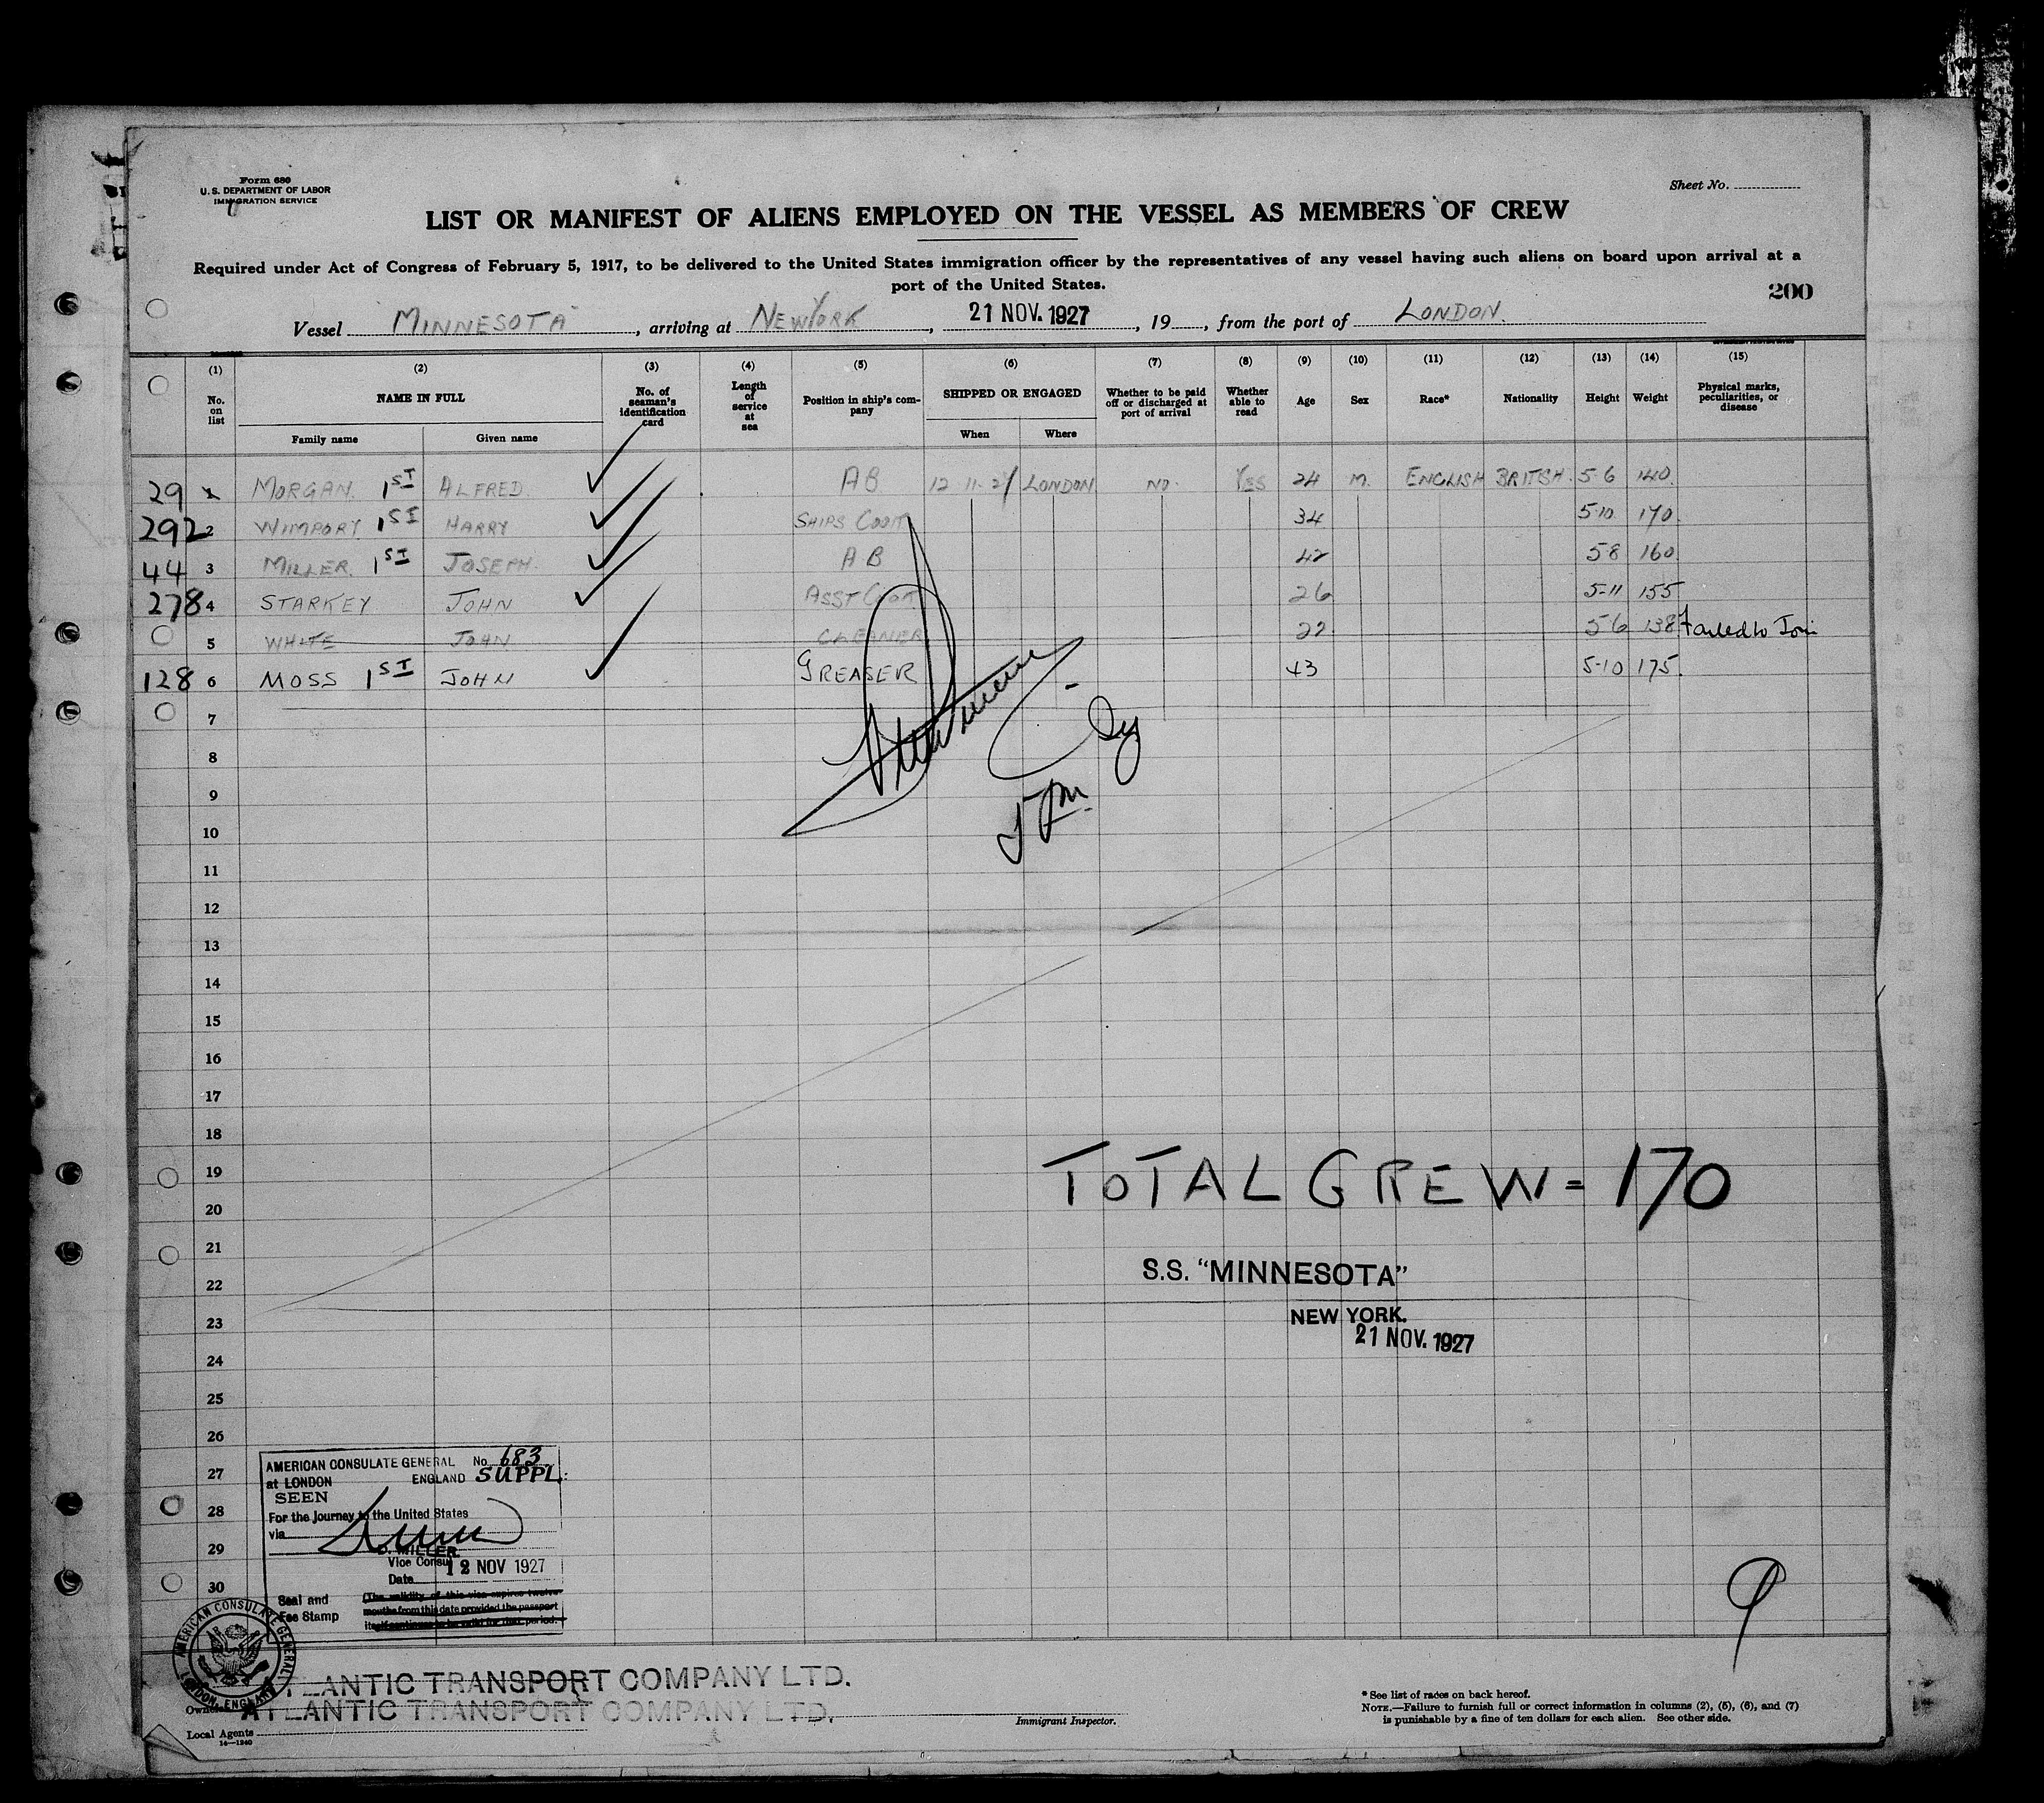 Form 680
U. S. DEPARTMENT OF LABOR
IMMIGRATION SERVICE
Sheet No.
LIST OR MANIFEST OF ALIENS EMPLOYED ON THE VESSEL AS MEMBERS OF CREW
Required under Act of Congress of February 5, 1917, to be delivered to the United States immigration officer by the representatives of any vessel having such aliens on board upon arrival at a
port of the United States.
200
Vessel MINNESOTA, arriving at NEW YORK, 21 NOV. 1927, 19, from the port of LONDON.
(1) (2) (3) (4) (5) (6) (7) (8) (9) (10) (11) (12) (13) (14) (15)
No. on list NAME IN FULL Family name Given name No. of seaman's identification card Length of service at sea Position in ship's company SHIPPED OR ENGAGED When Where Whether to be paid off or discharged at port of arrival Whether able to read Age Sex Race* Nationality Height Weight Physical marks, peculiarities, or disease
29 1 MORGAN 1ST ALFRED. ✓ AB 12 11-27 LONDON NO. YES 24 M. ENGLISH BRITISH. 5-6 140.
292 2 WIMPORY 1ST HARRY ✓ SHIPS COOK 34 5-10 170.
44 3 MILLER. 1ST JOSEPH. ✓ AB 42 5 8 160.
278 4 STARKEY JOHN ✓ ASST COOK 26 5-11 155
5 WHITE JOHN CLEANER 22. 5 6 138 Failed to Join
128 6 MOSS 1ST JOHN ✓ GREASER 43 5-10 175.
7
8
9
10
11
12
13
14
15
16
17
18
19
20
21
22
23
24
25
26
27
28
29
30
TOTAL CREW = 170
S.S. "MINNESOTA"
NEW YORK.
21 NOV. 1927
AMERICAN CONSULATE GENERAL No. 683
at LONDON ENGLAND SUPPL:
SEEN
For the Journey to the United States
via
D. MILLER.
Vice Consul
Date 12 NOV 1927
Seal and
Fee Stamp
(The validity of this vise expires twelve
months from this date provided the passport
itself continues to be valid for that period.
AMERICAN CONSULATE GENERAL
LONDON, ENGLAND
9
ATLANTIC TRANSPORT COMPANY LTD.
Owners ATLANTIC TRANSPORT COMPANY LTD.
Local Agents
14—1240
Immigrant Inspector.
* See list of races on back hereof.
NOTE.—Failure to furnish full or correct information in columns (2), (5), (6), and (7)
is punishable by a fine of ten dollars for each alien. See other side.